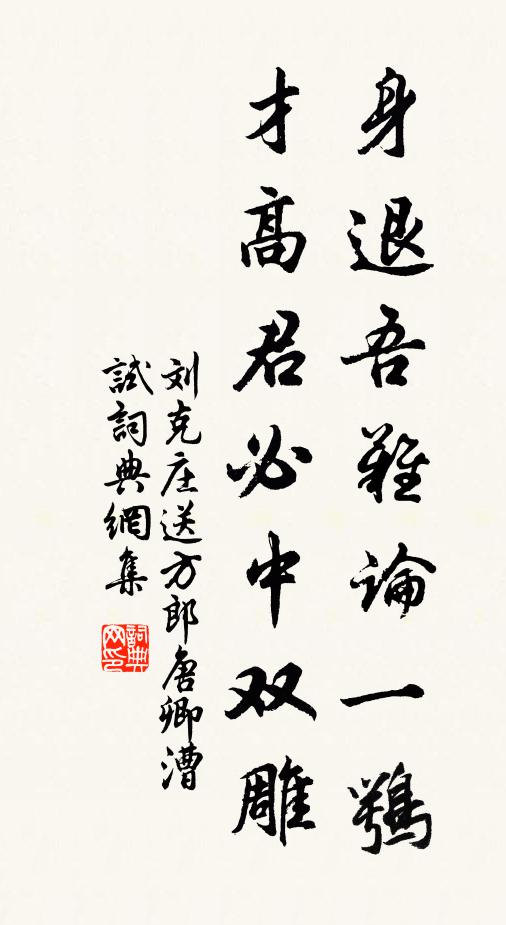 身退吾难論一鶚
才高君必中双雕
刘克庄送方郎唐卿漕
試詞典網集
詞典网印